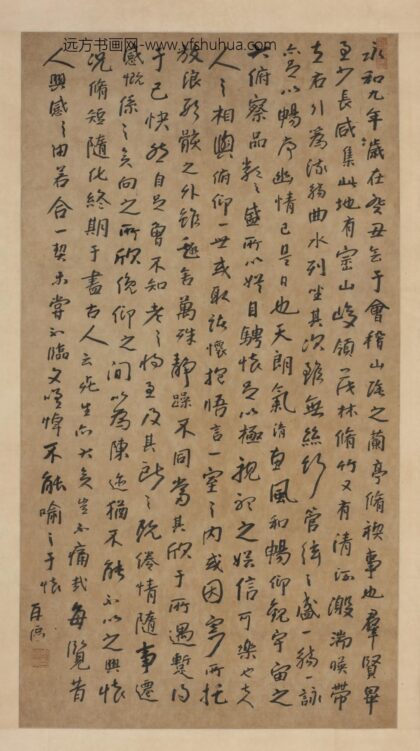 远方书画网-www.yfshuhua.com
永和九年歲在癸丑会于會稽山陰之蘭亭脩禊事也羣賢畢
至少長咸集此地有崇山峻領茂林脩竹又有清流激湍暎帶
左右引為流觴曲水列坐其次雖無絲竹管弦之盛一觴一詠
亦足以暢序幽情已是日也天朗氣清惠風和暢仰觀宇宙之
大俯察品類之盛所以娛目騁懷足以極視聽之娛信可樂也夫
人之相與俯仰一世或取諸懷抱悟言一室之内或因寄所托
放浪形骸之外雖趣舍萬殊靜躁不同當其欣于所遇蹔得
于己快然自足曾不知老之將至及其所之既倦情隨事遷
感慨係之矣向之所欣俛仰之間以為陳迹猶不能不以之興懷
況脩短隨化終期于盡古人云死生亦大矣豈不痛哉每覽昔
人興感之由若合一契未嘗不臨文嗟悼不能喻之于懷